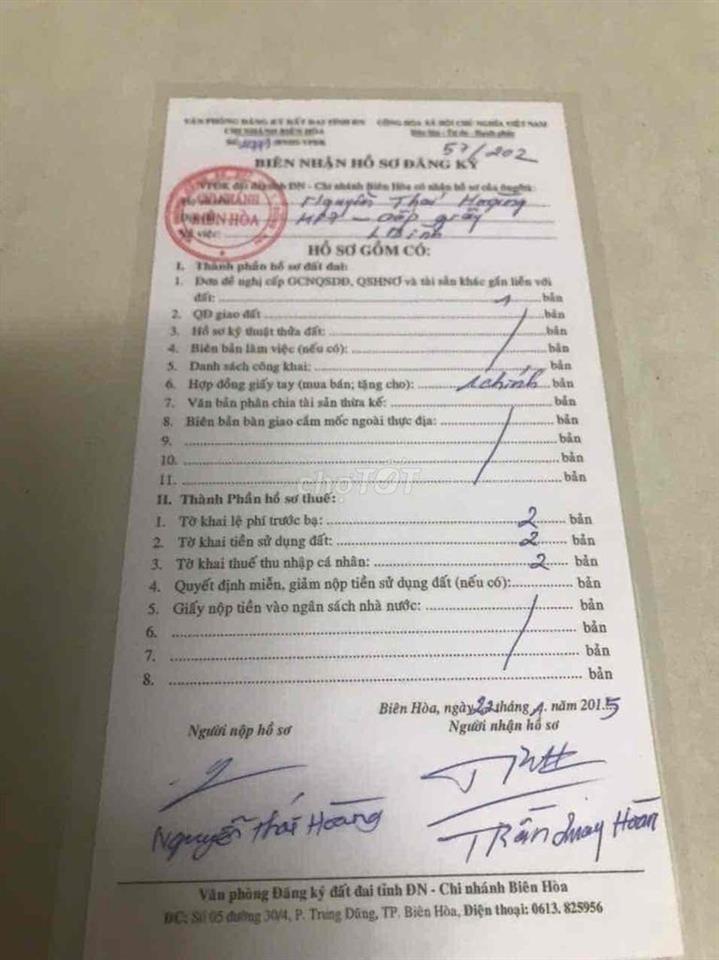 VĂN PHÒNG ĐĂNG KÝ ĐẤT ĐAI TỈNH ĐN CỘNG HÒA XÃ HỘI CHỦ NGHĨA VIỆT NAM
CHI NHÁNH BIÊN HÒA Độc lập - Tự do - Hạnh phúc
57/202
BIÊN NHẬN HỒ SƠ ĐĂNG KÝ
VPĐK đất đai tỉnh ĐN - Chi nhánh Biên Hòa có nhận hồ sơ của ông/bà:
Nguyễn Thái Hoàng
CHI NHÁNH
BIÊN HÒA
cấp giấy
Về việc:
HỒ SƠ GỒM CÓ:
I. Thành phần hồ sơ đất đai:
1. Đơn đề nghị cấp GCNQSDĐ, QSHNƠ và tài sản khác gắn liền với
đất: 1 bản
2. QĐ giao đất bản
3. Hồ sơ kỹ thuật thửa đất: bản
4. Biên bản làm việc (nếu có): bản
5. Danh sách công khai: bản
6. Hợp đồng giấy tay (mua bán; tặng cho): 1 chính bản
7. Văn bản phân chia tài sản thừa kế: bản
8. Biên bản bàn giao cắm mốc ngoài thực địa: bản
9. bản
10. bản
11. bản
chợTỐT
II. Thành Phần hồ sơ thuế:
1. Tờ khai lệ phí trước bạ: 2 bản
2. Tờ khai tiền sử dụng đất: 2 bản
3. Tờ khai thuế thu nhập cá nhân: 2 bản
4. Quyết định miễn, giảm nộp tiền sử dụng đất (nếu có): bản
5. Giấy nộp tiền vào ngân sách nhà nước: bản
6. bản
7. bản
8. bản
Biên Hòa, ngày 22 tháng 4 năm 2015
Người nộp hồ sơ Người nhận hồ sơ
Nguyễn Thái Hoàng Trần Hoàn
Văn phòng Đăng ký đất đai tỉnh ĐN - Chi nhánh Biên Hòa
ĐC: Số 05 đường 30/4, P. Trung Dũng, TP. Biên Hòa, Điện thoại: 0613. 825956